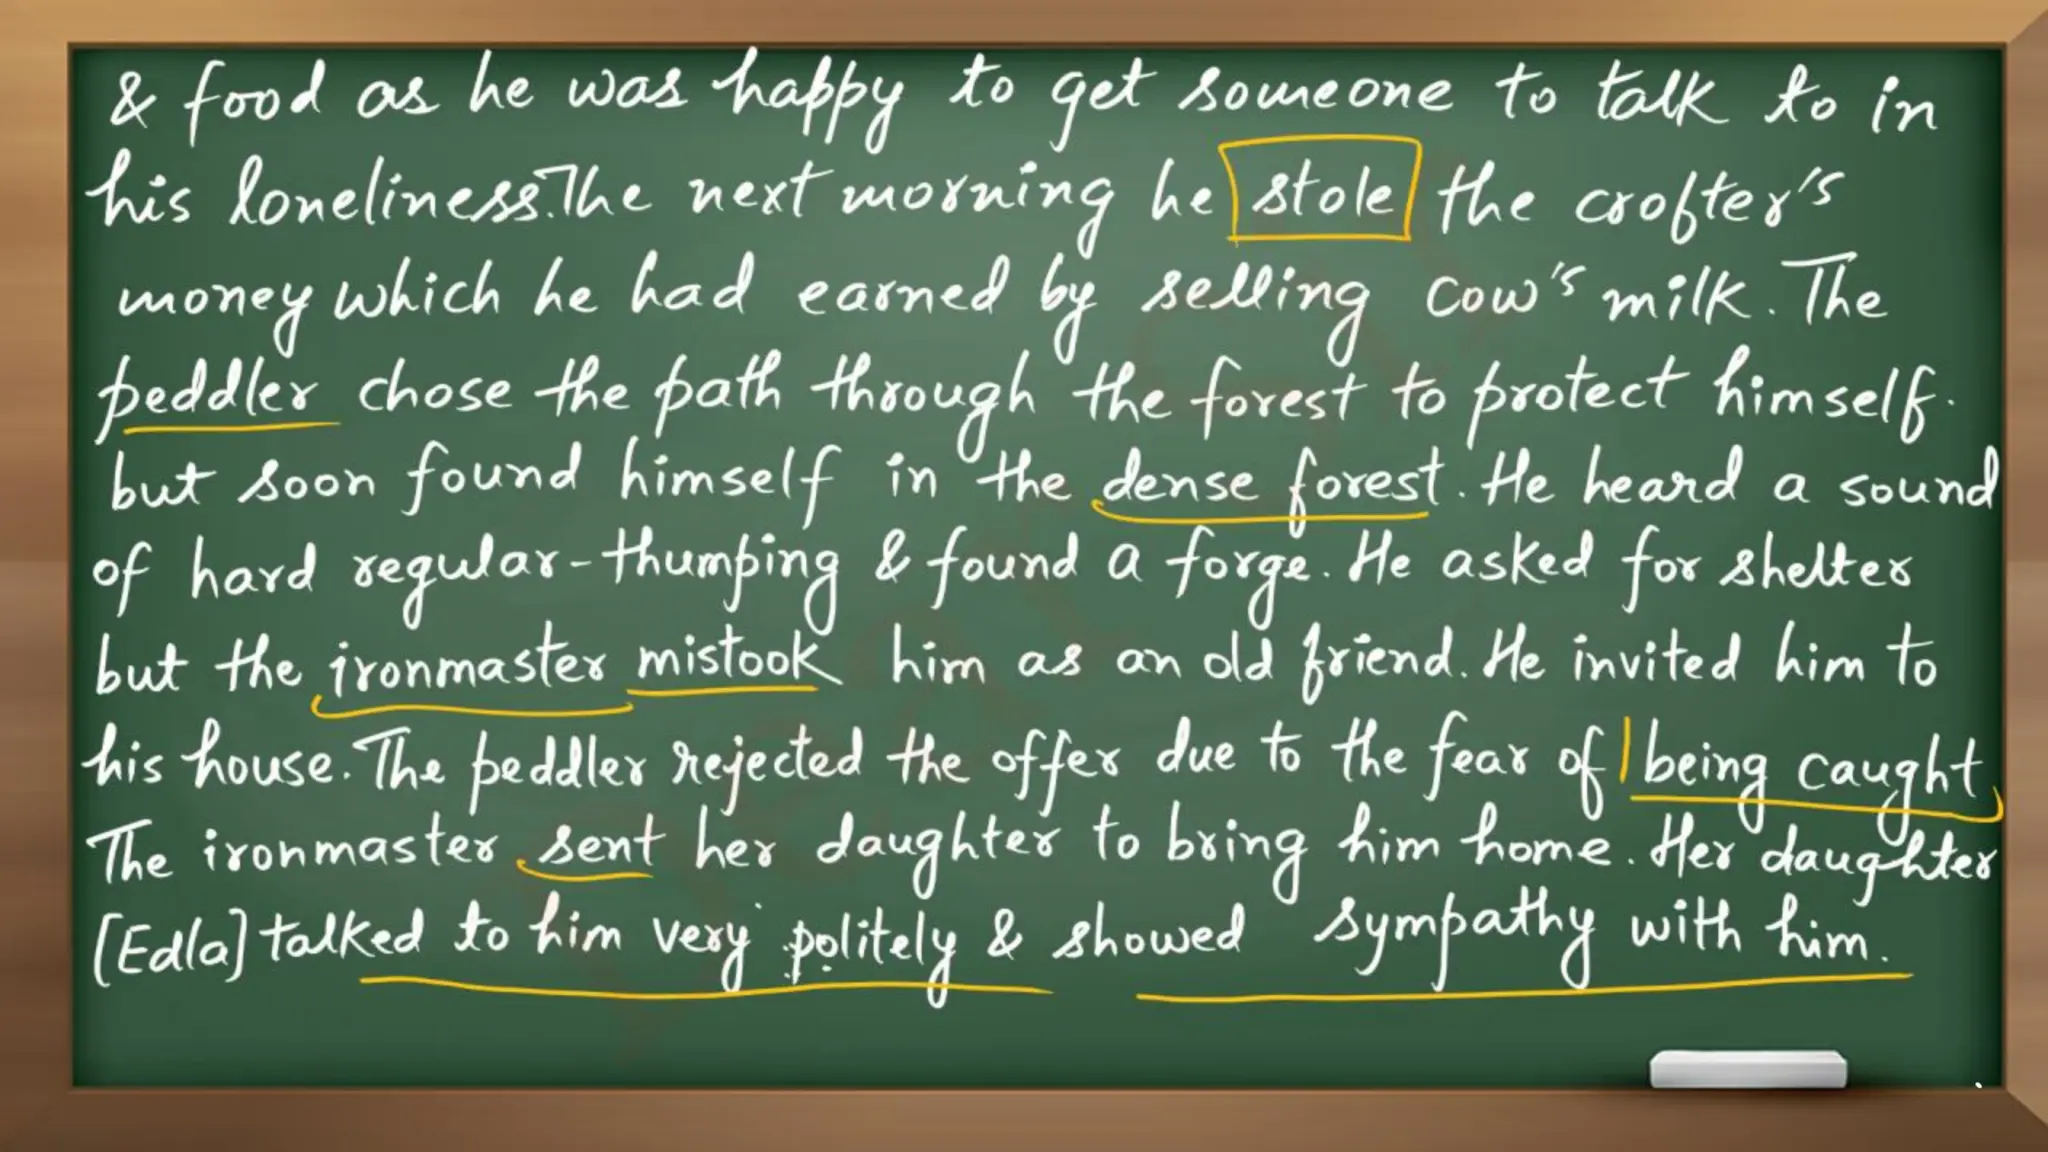 & food as he was happy to get someone to talk to in
his loneliness. The next morning he stole the crofter's
money which he had earned by selling cow's milk. The
peddler chose the path through the forest to protect himself.
but soon found himself in the dense forest. He heard a sound
of hard regular-thumping & found a forge. He asked for shelter
but the ironmaster mistook him as an old friend. He invited him to
his house. The peddler rejected the offer due to the fear of being caught
The ironmaster sent her daughter to bring him home. Her daughter
[Edla] talked to him very politely & showed sympathy with him.